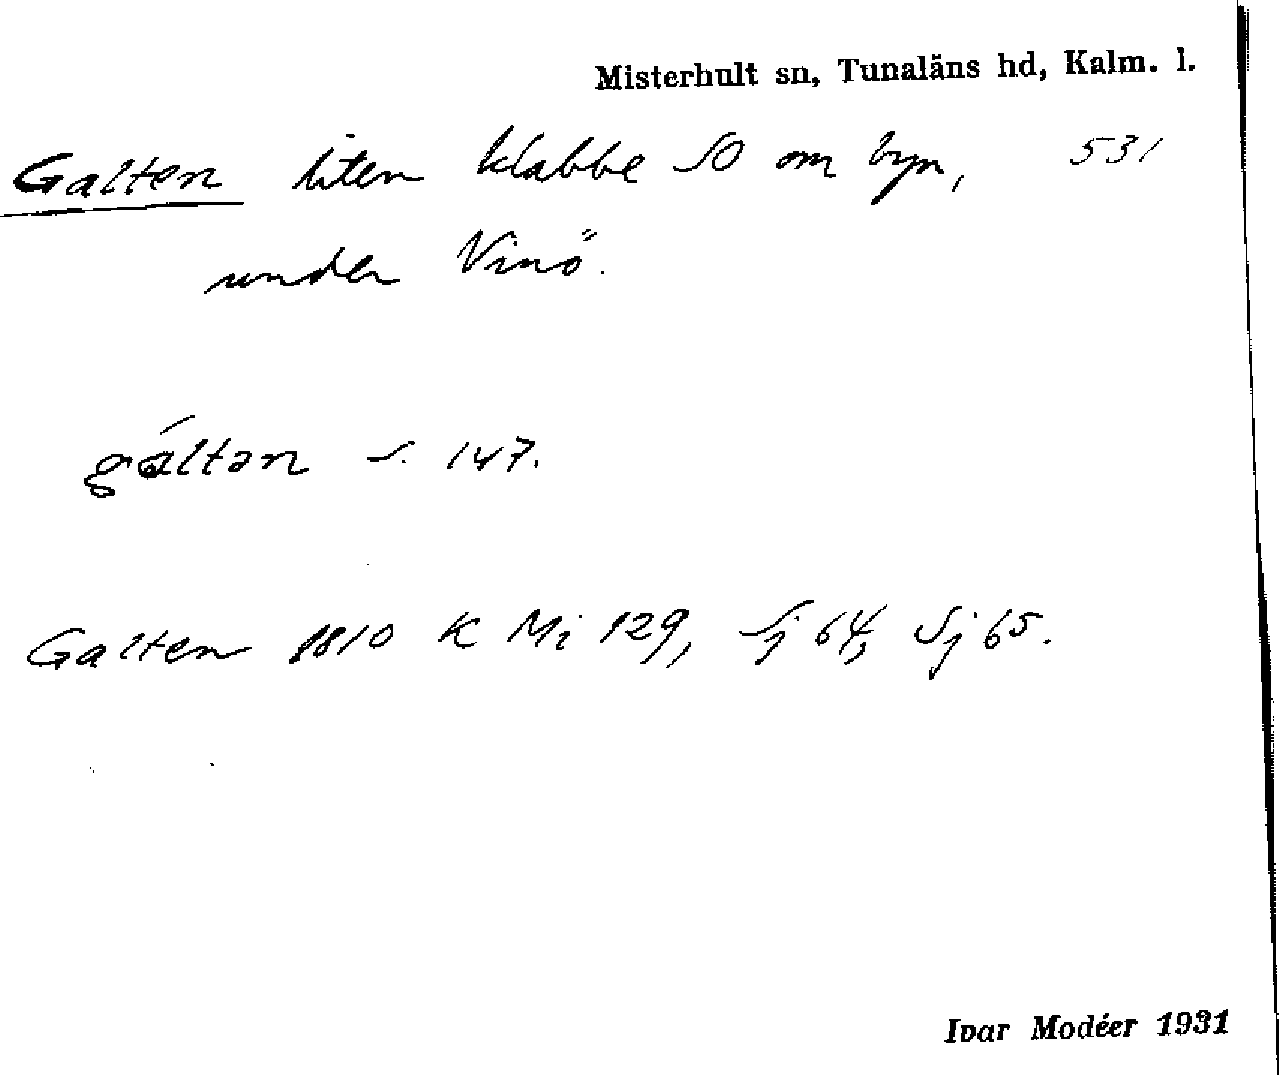 Misterhult sn, Tunaläns hd, Kalm. l.
Galten liten klabbe SO om byn, 531
under Vinö.
gáltən s. 147.
Galten 1810 K Mi 129, Sj 64, Sj 65.
Ivar Modéer 1931